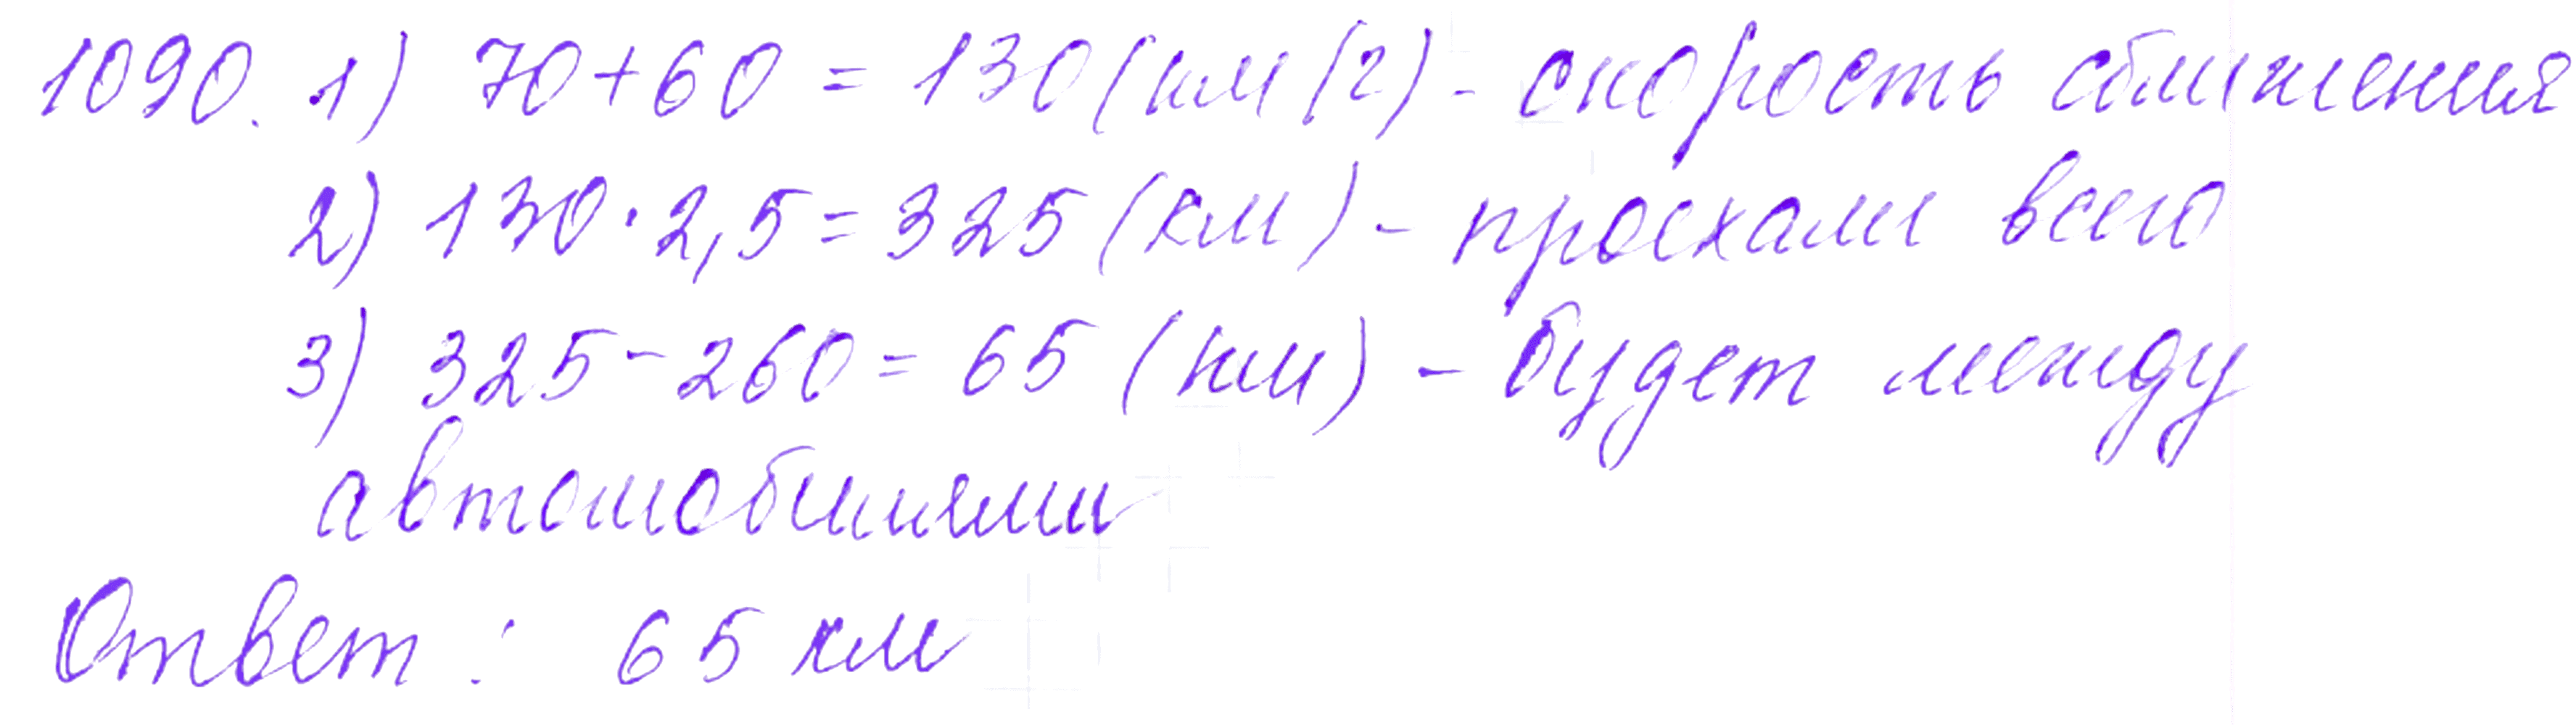 1090. 1) 70+60 = 130 (км/ч) - скорость сближения
2) 130·2,5 = 325 (км) - проехали всего
3) 325-260 = 65 (км) - будет между
автомобилями
Ответ: 65 км